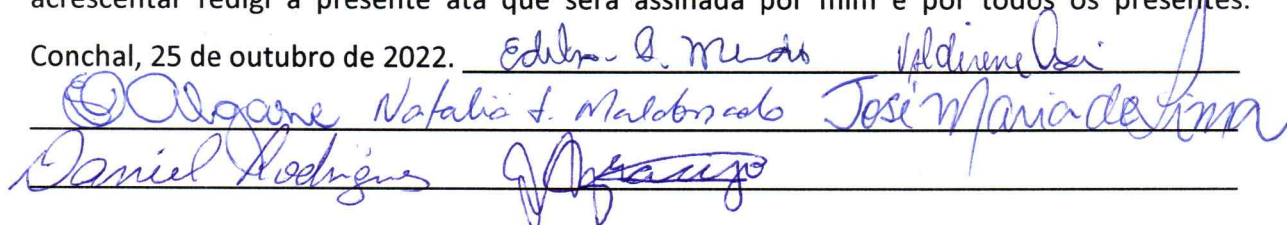 acrescentar redigi a presente ata que será assinada por mim e por todos os presentes.
Conchal, 25 de outubro de 2022. Valdirene
Natalia Maldonado José Maria de Lima
Daniel Rodrigues Araujo